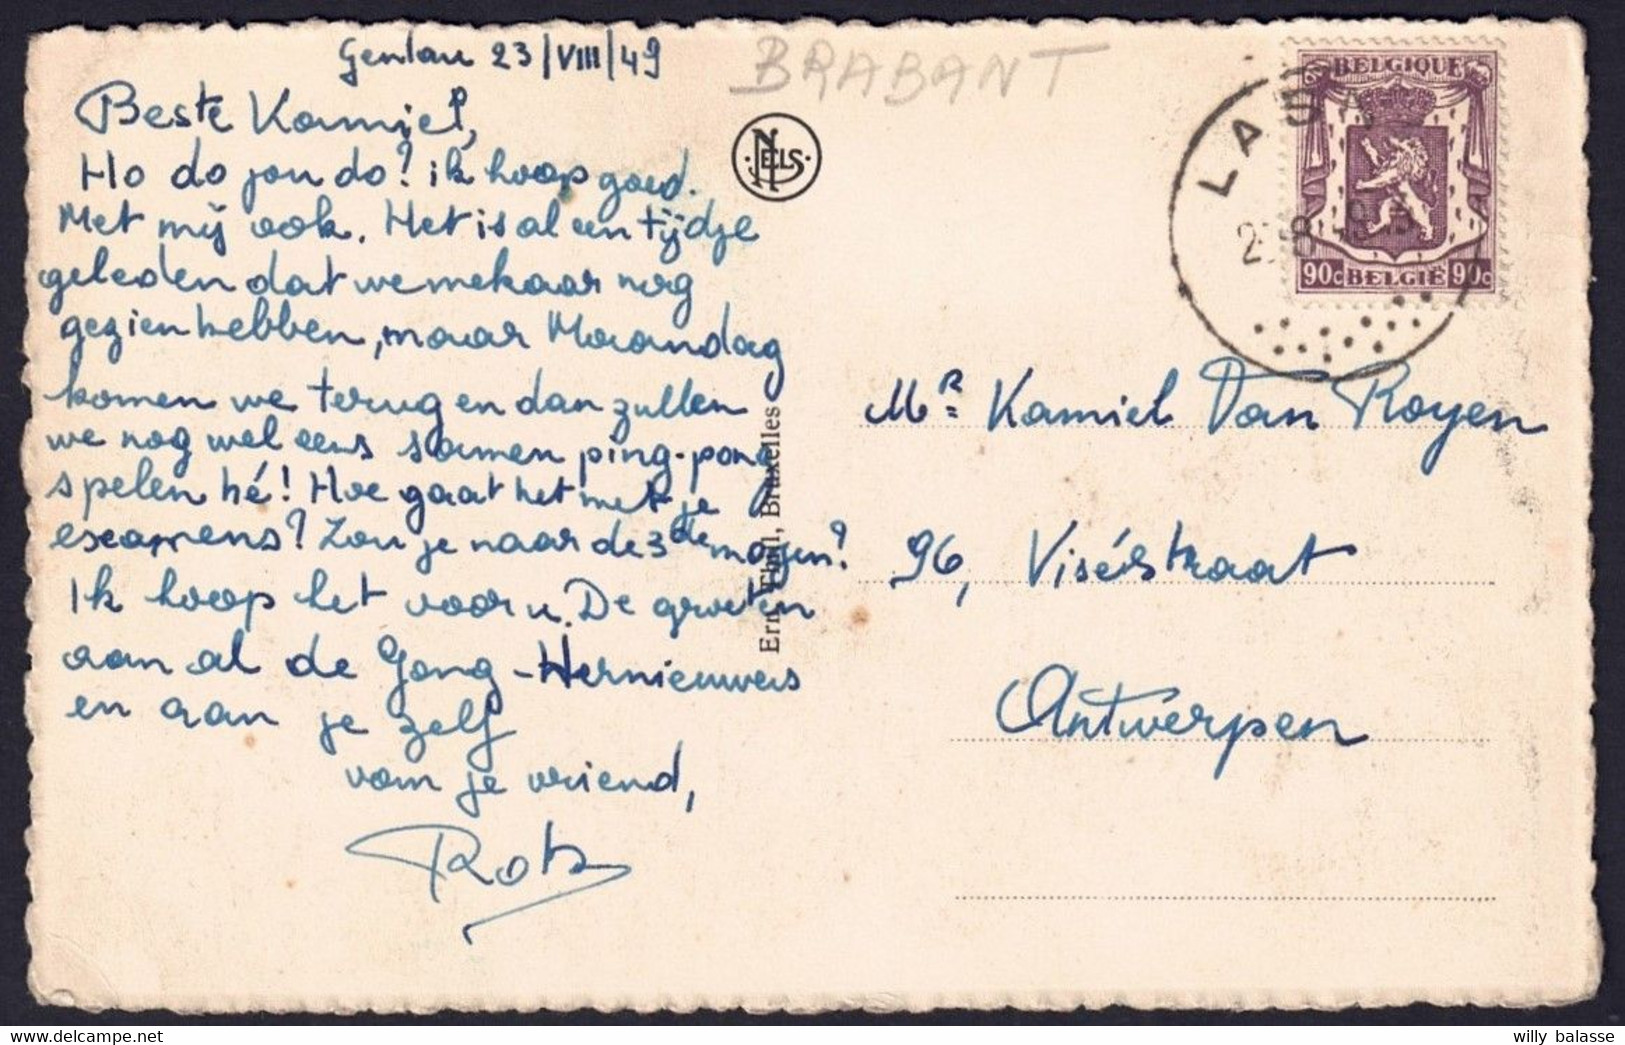 Genlau 23/VIII/49
BRABANT
Beste Kamiel,
Ho do jou do? ik hoop goed.
Met mij ook. Het is al een tijdje
geleden dat we mekaar nog
gezien hebben, maar Maandag
komen we terug en dan zullen
we nog wel eens samen ping-pong
spelen hé! Hoe gaat het met je
examens? Zou je naar de 3de mogen?
Ik hoop het voor u. De groeten
aan al de Gong-Hernieuwers
en aan je zelf
van je vriend,
NELS
Ern. Thill, Bruxelles
BELGIQUE
90c BELGIË 90c
Mr. Kamiel Van Royen
96, Viséstraat
Antwerpen
willy balasse